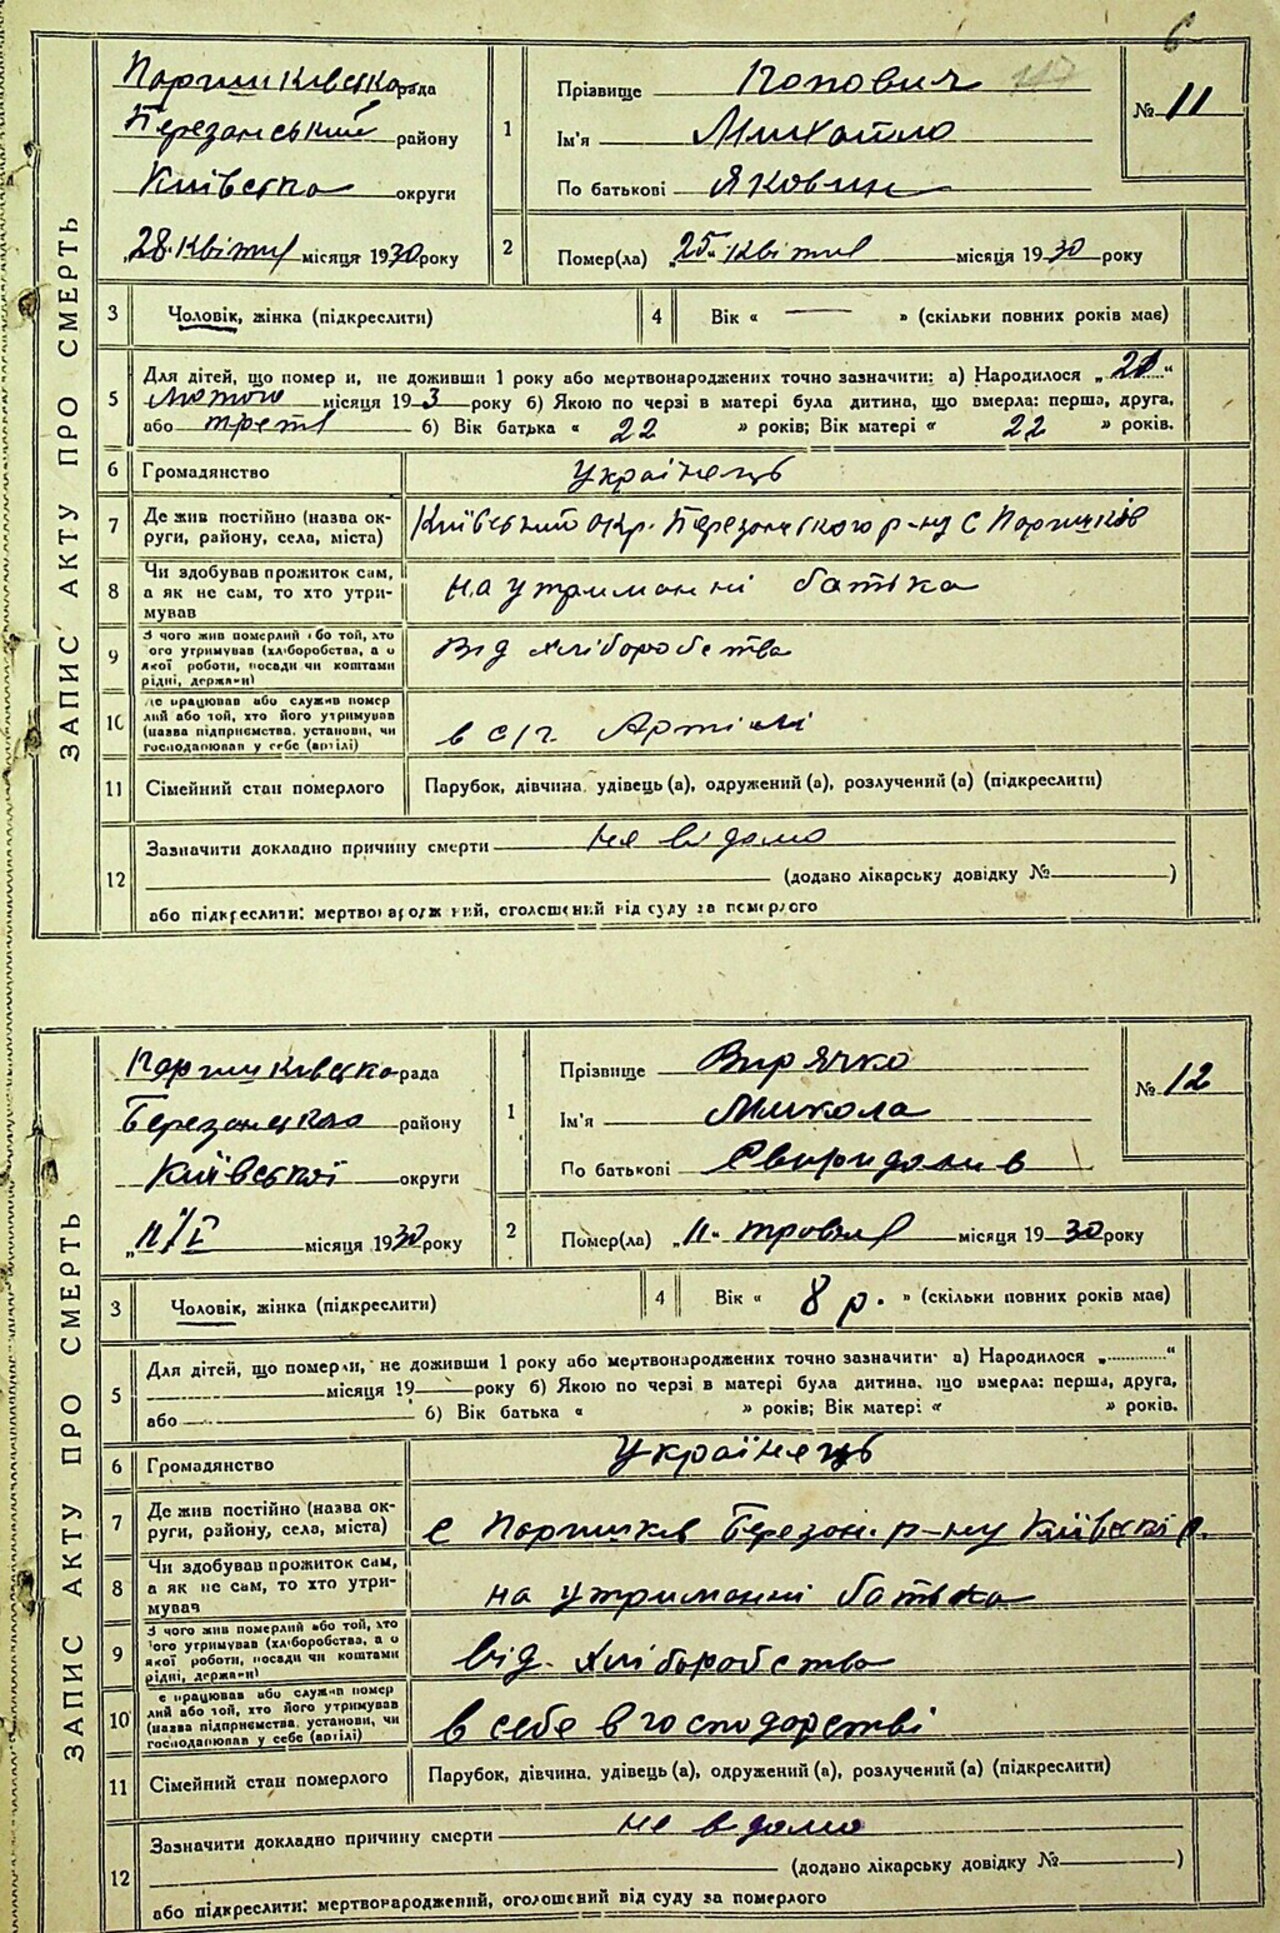 6
ЗАПИС АКТУ ПРО СМЕРТЬ
Паришківська рада
Березанський району
Київська округи
„28" Квітня місяця 1930 року
1
Прізвище Попович
Ім'я Михайло
По батькові Якович
№ 11
2 Помер(ла) „25" Квітня місяця 1930 року
3 Чоловік, жінка (підкреслити)
4 Вік « — » (скільки повних років має)
5 Для дітей, що помер и, не доживши 1 року або мертвонароджених точно зазначити: а) Народилося „ "
Лютого місяця 193 року б) Якою по черзі в матері була дитина, що вмерла: перша, друга,
або третя б) Вік батька « 22 » років; Вік матері « 22 » років.
6 Громадянство Українець
7 Де жив постійно (назва ок-
руги, району, села, міста) Київський окр. Березанського р-ну С Паришків
8 Чи здобував прожиток сам,
а як не сам, то хто утри-
мував на утриманні батька
9 З чого жив померлий або той, хто
ого утримував (хліборобства, а о
якої роботи, посади чи коштами
рідні, держави) Від хліборобства
10 де працював або служив помер
лий або той, хто його утримував
(назва підприємства, установи, чи
господарював у себе (артілі) в с/г. Артілі
11 Сімейний стан померлого Парубок, дівчина, удівець (а), одружений (а), розлучений (а) (підкреслити)
12 Зазначити докладно причину смерти не відомо
(додано лікарську довідку № )
або підкреслити: мертвонароджений, оголошений від суду за померлого
ЗАПИС АКТУ ПРО СМЕРТЬ
Паришківська рада
району
Київської округи
„11/V місяця 1930 року
1
Прізвище
Ім'я Микола
По батькові
№ 12
2 Помер(ла) „11" травня місяця 1930 року
3 Чоловік, жінка (підкреслити)
4 Вік « 8 р. » (скільки повних років має)
5 Для дітей, що померли, не доживши 1 року або мертвонароджених точно зазначити: а) Народилося „ "
місяця 19 року б) Якою по черзі в матері була дитина, що вмерла: перша, друга,
або б) Вік батька « » років; Вік матері « » років.
6 Громадянство Українець
7 Де жив постійно (назва ок-
руги, району, села, міста) с Паришків Березан. р-ну Київської
8 Чи здобував прожиток сам,
а як не сам, то хто утри-
мував на утриманні батька
9 З чого жив померлий або той, хто
ого утримував (хліборобства, а о
якої роботи, посади чи коштами
рідні, держави) від хліборобства
10 е працював або служив помер
лий або той, хто його утримував
(назва підприємства, установи, чи
господарював у себе (артілі) в себе в господарстві
11 Сімейний стан померлого Парубок, дівчина, удівець (а), одружений (а), розлучений (а) (підкреслити)
12 Зазначити докладно причину смерти не відомо
(додано лікарську довідку № )
або підкреслити: мертвонароджений, оголошений від суду за померлого